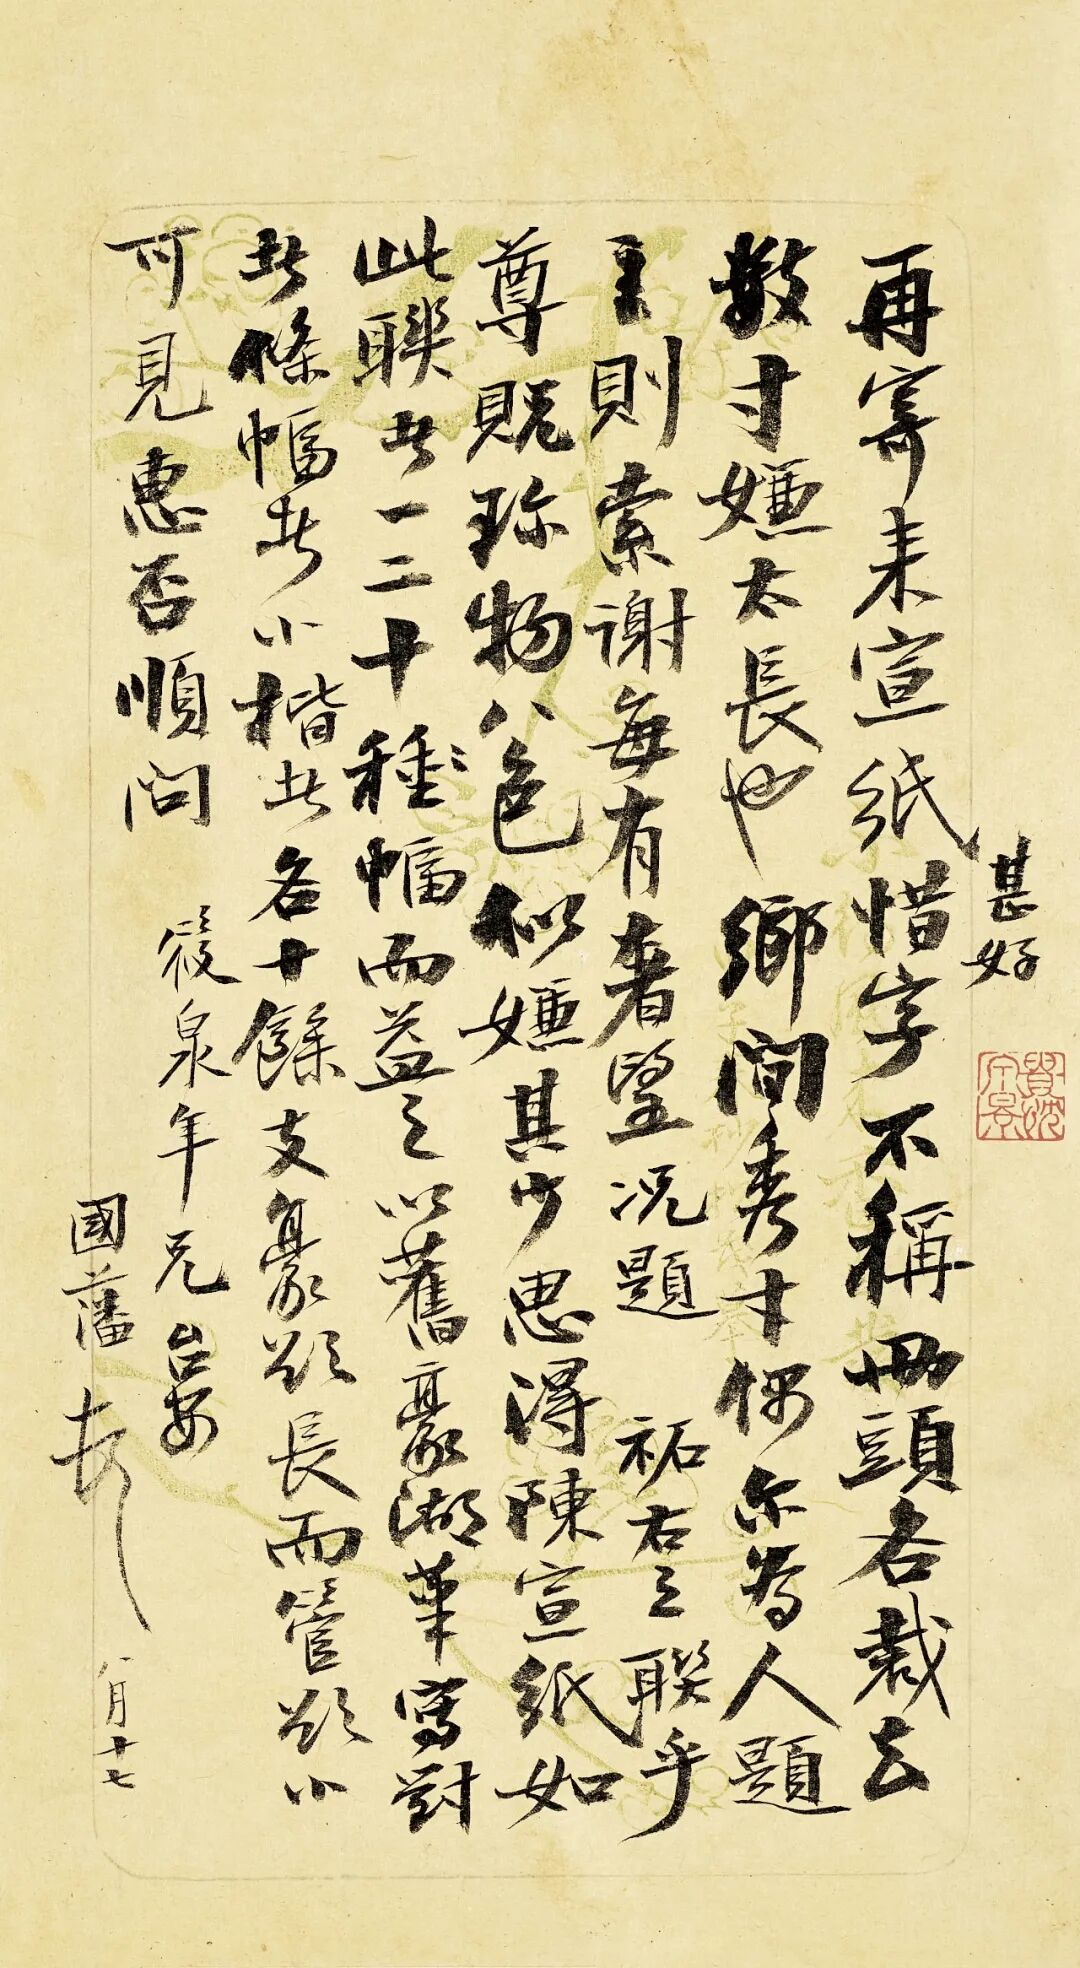 再寄来宣紙惜字不稱冊頭各裁去
甚好
數寸嫌太長也鄉間秀才偶尔为人題
主則索謝每有奢望况題　祐右之聯乎
尊貺珍物八色似嫌其少思得陳宣紙如
此聯者一二十種種幅而益之以舊豪湖筆寫對
者條幅者小楷者各十餘支豪欲長而管欲小
可見惠否順問
筱泉年兄台安
國藩
八月十七